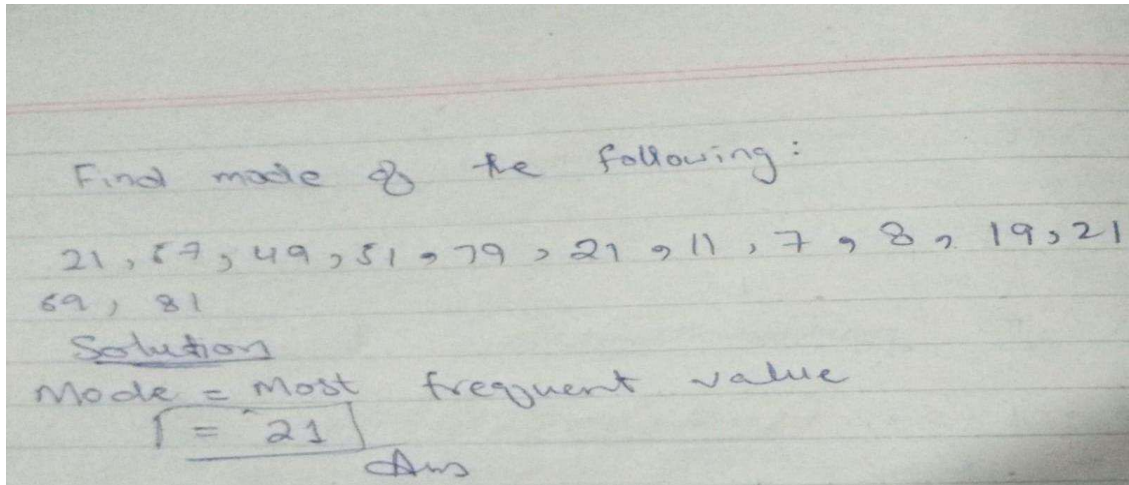 Find mode of the following:
21, 57, 49, 51, 79, 21, 11, 7, 8, 19, 21
69, 81
Solution
Mode = Most frequent value
= 21
Ans